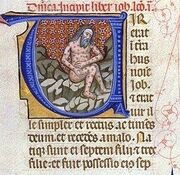 Incipit liber iob
IR
erat
iob
et e
rat uir
ille simplex et rectus ac timēs
deum et recedēs a malo. Na
sunt ei septem filii et tres
filie et fuit possessio eiꝰ sep